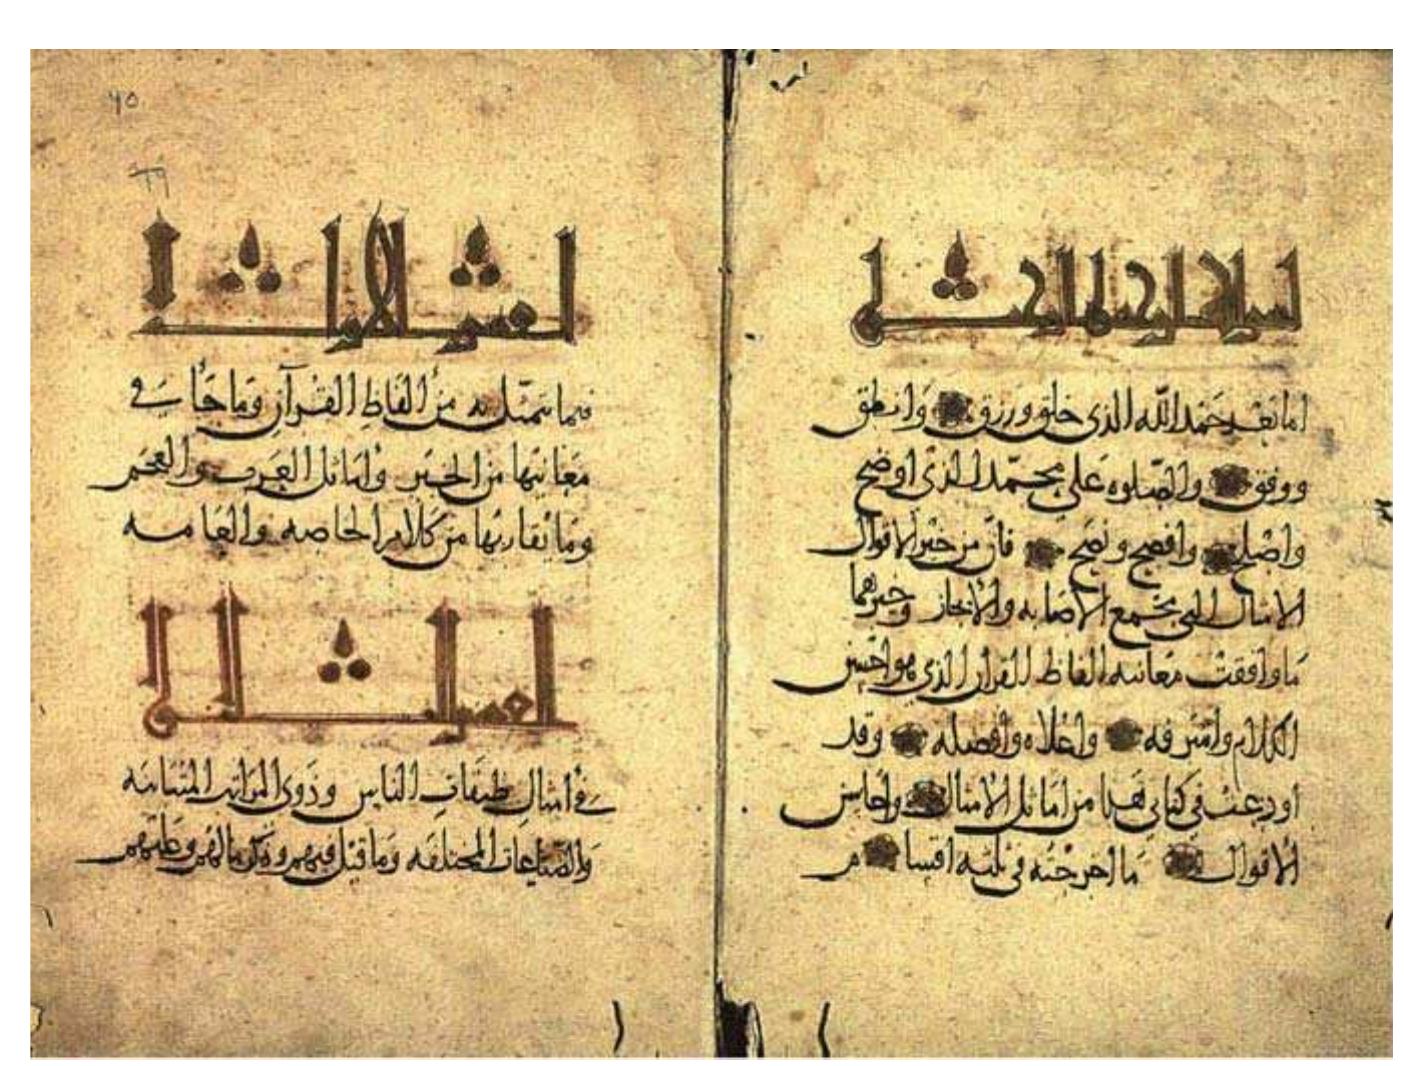 بسم الله الرحمن الرحيم
اما بعد حمد الله الذي خلق ورزق وانطق
ووفق والصلوه على محمد الذي اوضح
واصلح وافصح ونصح فان من خير الاقوال
الامثال التي تجمع الاصابه والايجاز وخيرهما
ما وافقت معانيه الفاظ القران الذي هو احسن
الكلام واشرفه واعلاه وافضله وقد
اودعت في كتابي هذا من اماثل الامثال واحاسن
الاقوال ما اخرجته في ثلثه اقسام
القسم الاول
فيما يتمثل به من الفاظ القرآن وما جا في
معانيها من الخبر وامثال العرب والعجم
وما يقاربها من كلام الخاصه والعامه
القسم الثاني
في امثال طبقات الناس وذوي المراتب المتباينه
والصناعات المختلفه وما قيل فيهم وذكر ما لهم وعليهم